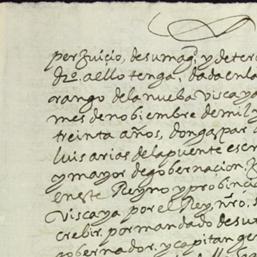 perJuiçio, de su mag. y de terc
dro. a ello tenga, dada en la
orango de la nueba viscaya
mes de nobiembre de mil y
treinta años, don gaspar d
luis arias de la puente escri
y mayor de gobernacion
en este Reyno y probinçia
Viscaya, por el Rey, nro. s
crebir, por mandado de su
gobernador, y capitan ge